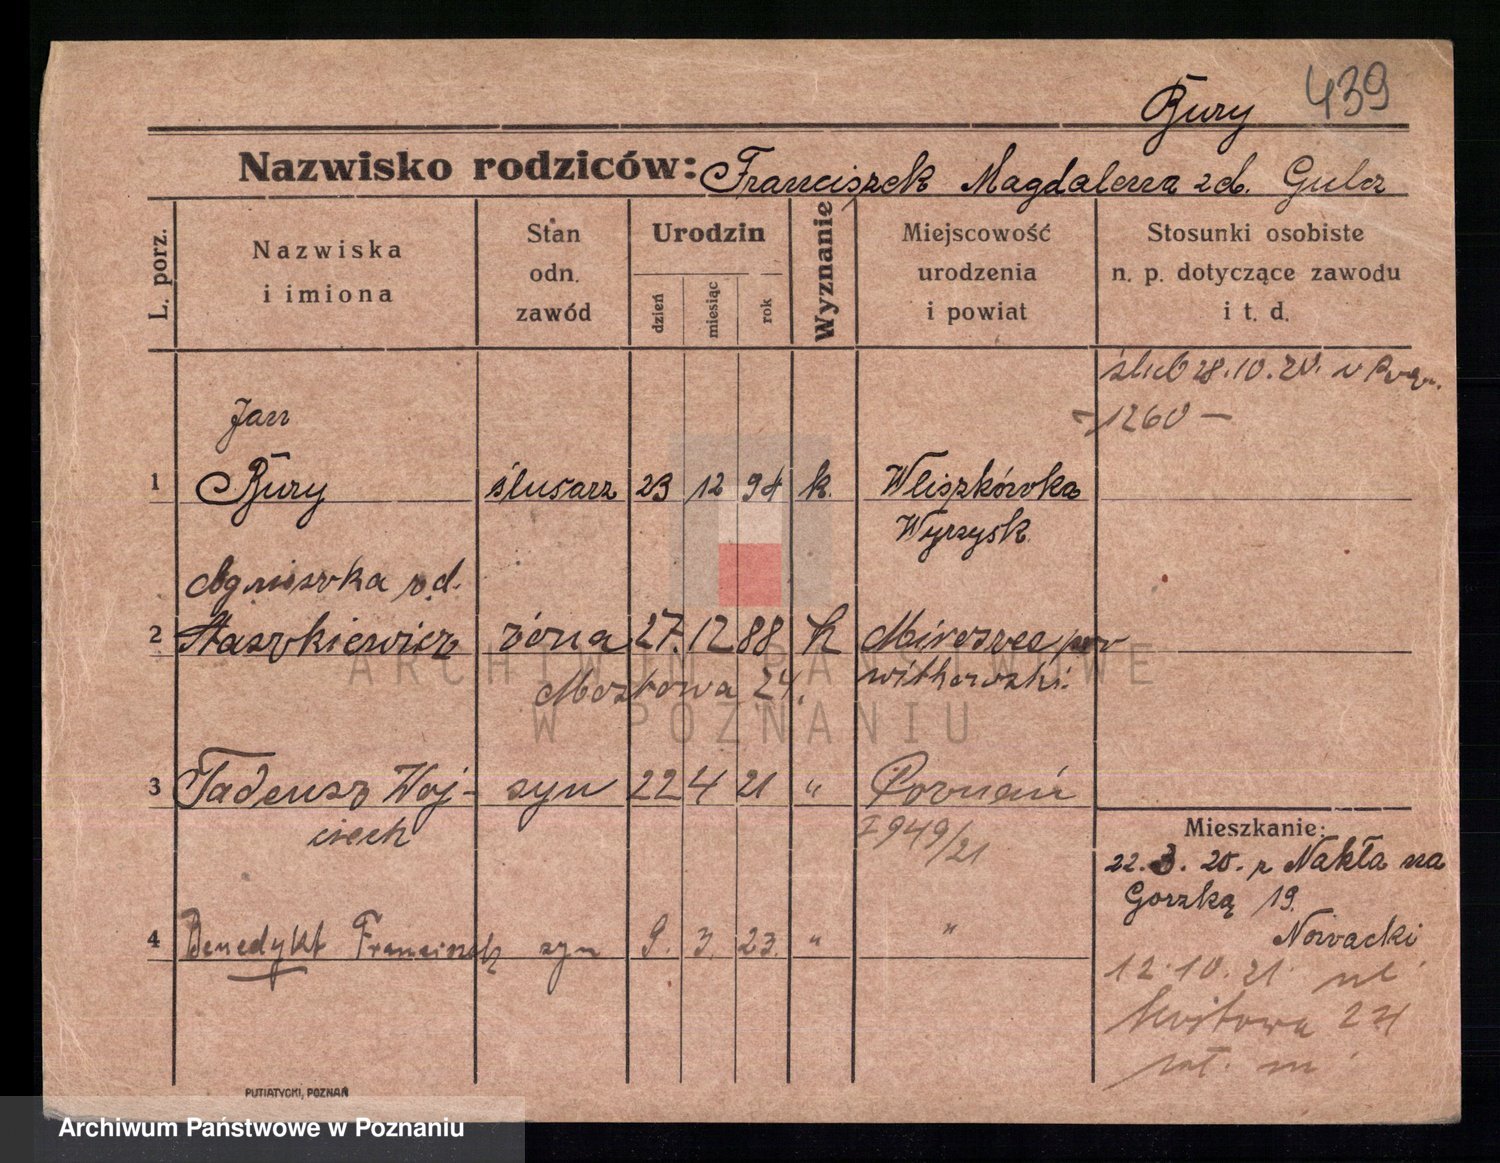 Bury 439
Nazwisko rodziców: Franciszek Magdalena zd. Gulcz
L. porz.
Nazwiska
i imiona
Stan
odn.
zawód
Urodzin
dzień
miesiąc
rok
Wyznanie
Miejscowość
urodzenia
i powiat
Stosunki osobiste
n. p. dotyczące zawodu
i t. d.
ślub 28.10.20. w Pozn.
-1260-
Jan
1 Bury ślusarz 23 12 94 k. Wliszkówka
Wyrzysk.
Agnieszka z d.
2 Staszkiewicz żona 27. 12 88 k pow
witkowski.
24.
3 Tadeusz Woj- syn 22 4 21 " Poznań
ciech I 949/21
4 Benedykt Franciszek syn 9. 3. 23. " "
Mieszkanie:
22.3.20. z Nakła na
Gorzką 19.
Nowacki
12.10.21. ul.
24
PUTIATYCKI, POZNAŃ
ARCHIWUM PAŃSTWOWE
W POZNANIU
Archiwum Państwowe w Poznaniu